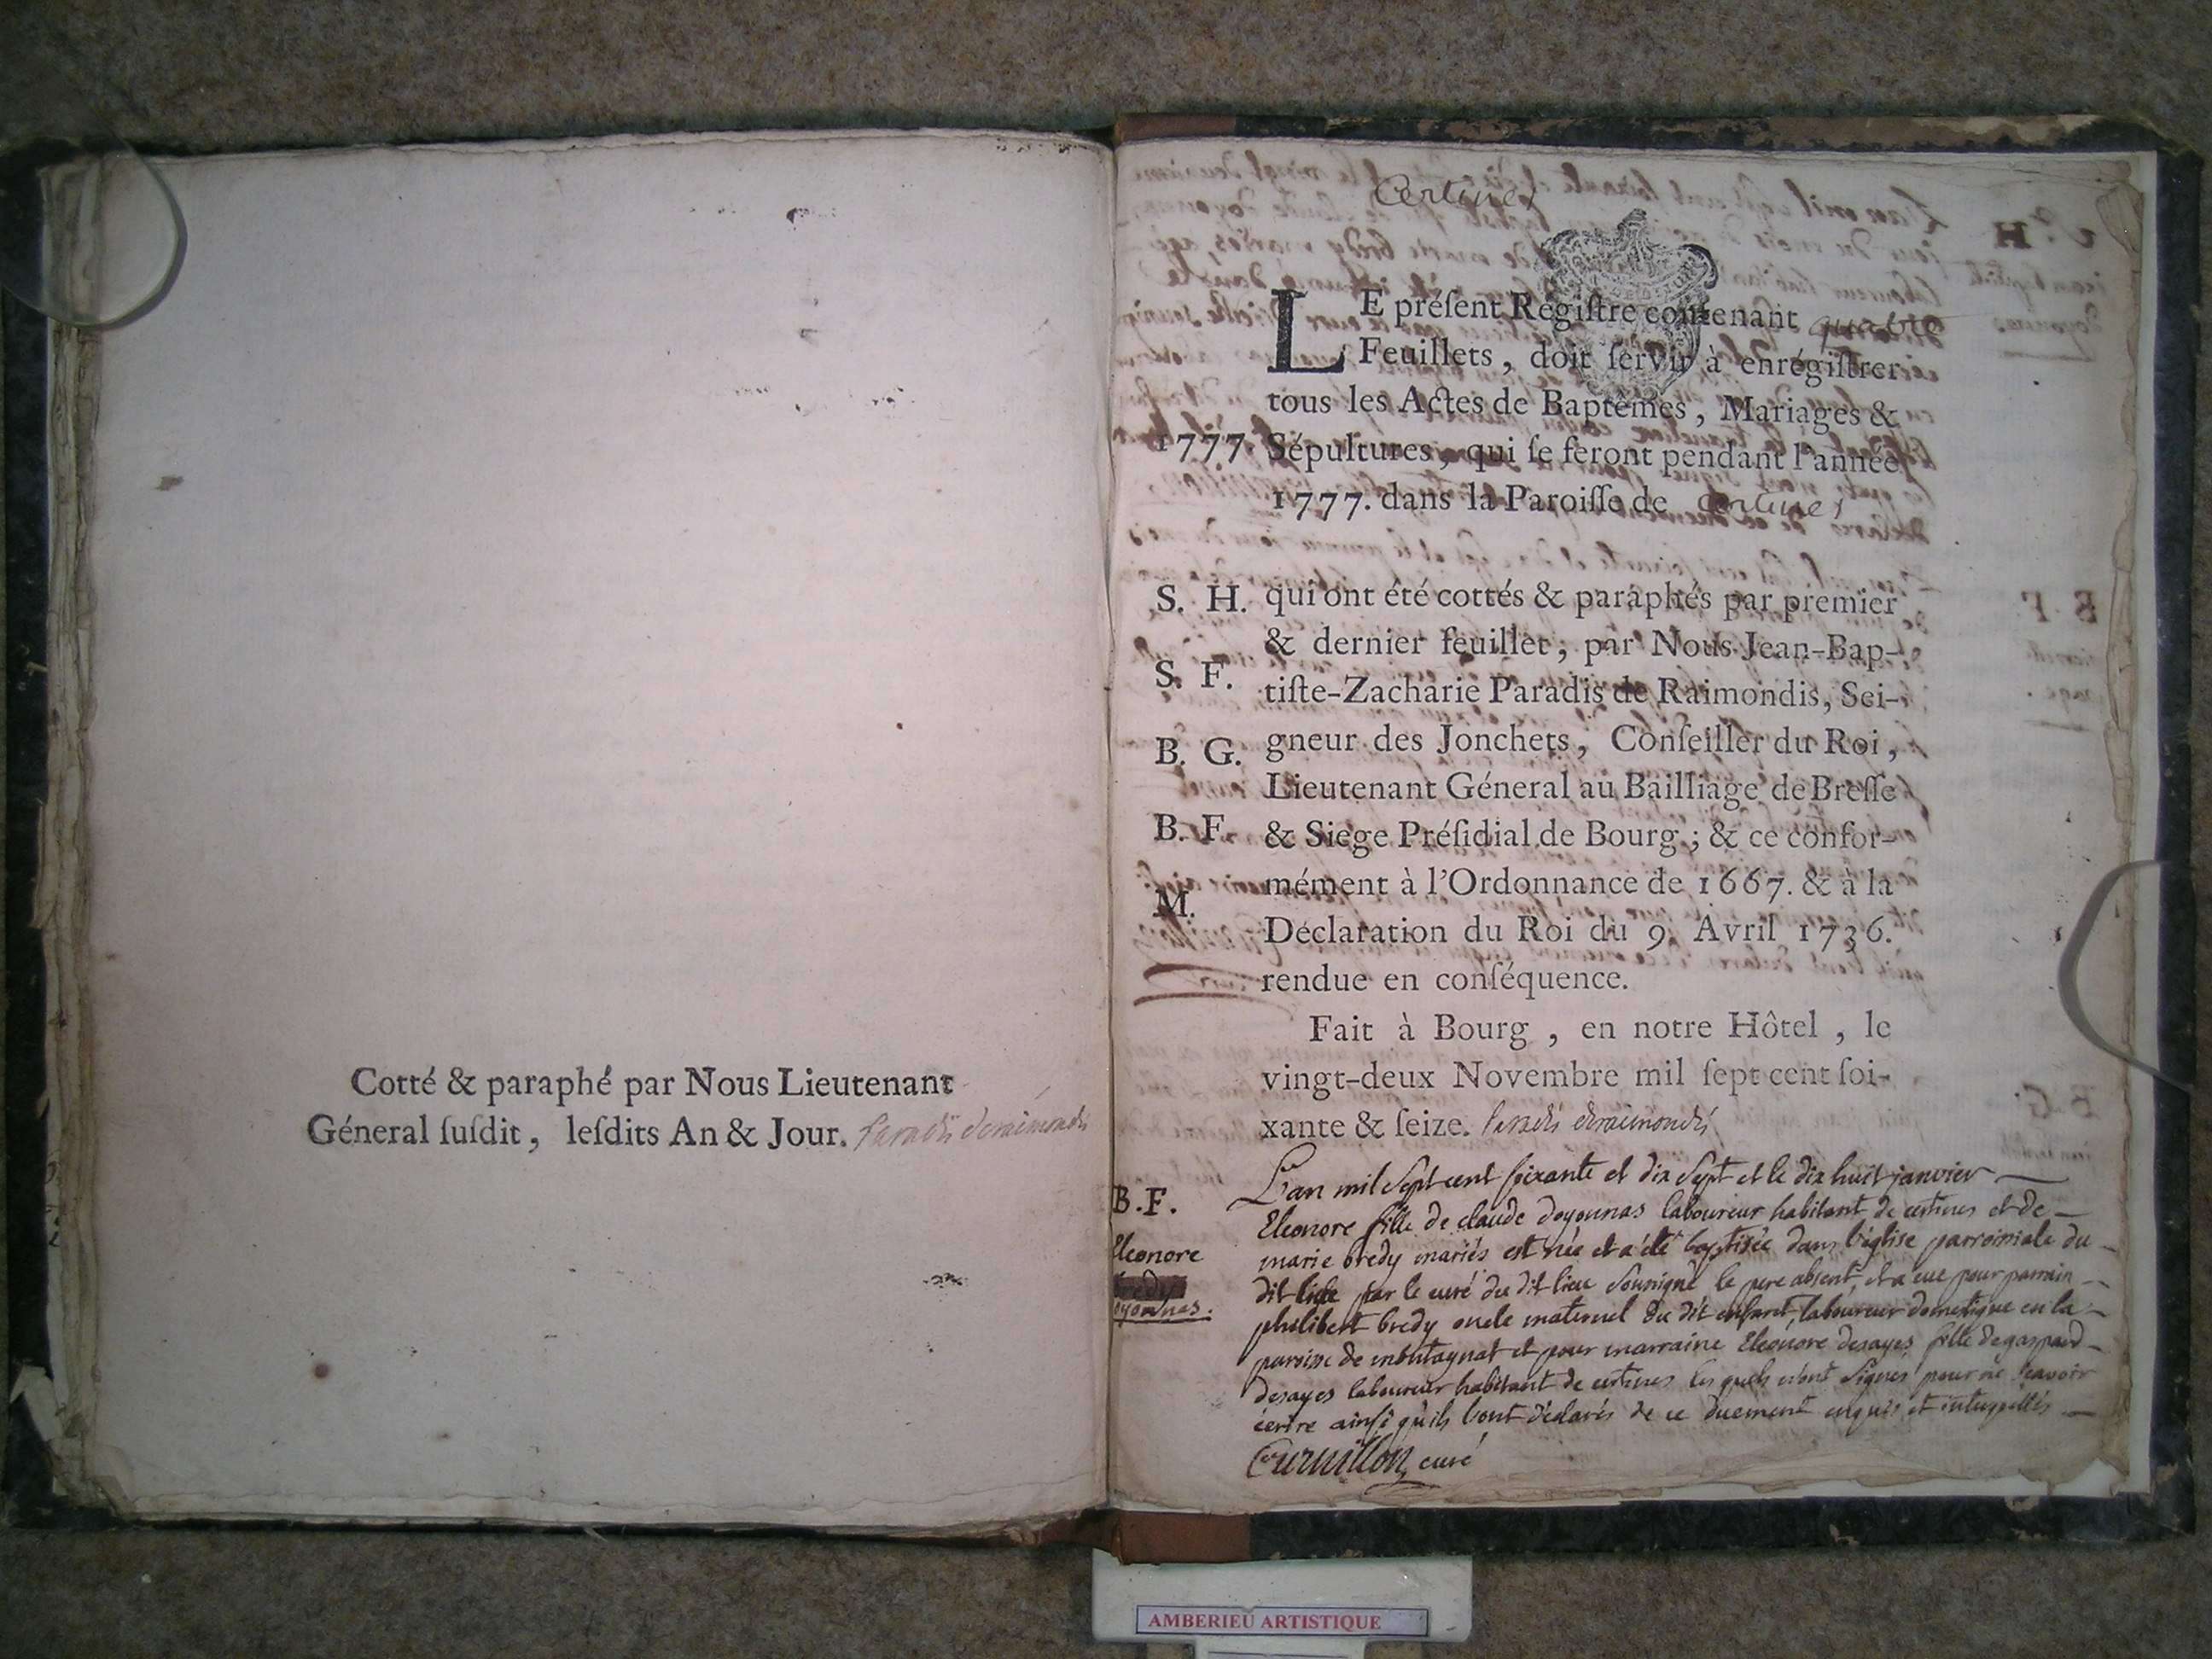 Cotté & paraphé par Nous Lieutenant
Géneral ſuſdit, leſdits An & Jour. Paradis deraimondis
Certines
LE préſent Regiſtre contenant quatre
Feuillets, doit ſervir à enrégiſtrer
tous les Actes de Baptêmes, Mariages &
1777. Sépultures, qui ſe feront pendant l'année
1777. dans la Paroiſſe de Certines
S. H. qui ont été cottés & paraphés par premier
& dernier feuillet, par Nous Jean-Bap-
S. F. tiſte-Zacharie Paradis de Raimondis, Sei-
B. G. gneur des Jonchets, Conſeiller du Roi,
Lieutenant Géneral au Bailliage de Breſſe
B. F. & Siege Préſidial de Bourg; & ce confor-
M. mément à l'Ordonnance de 1667. & à la
Déclaration du Roi du 9. Avril 1736.
rendue en conſéquence.
Fait à Bourg, en notre Hôtel, le
vingt-deux Novembre mil ſept cent ſoi-
xante & ſeize. Paradis deraimondis
B.F.
Eleonore
oyonnas.
L'an mil sept cent soixante et dix sept et le dix huit janvier
Eleonore fille de claude doyonnas laboureur habitant de certines et de
marie bredy mariés est née et a été baptisée dans l'église parroissiale du
dit lieu par le curé du dit lieu sousigné le pere absent, et a eue pour parrain
philibert bredy oncle maternel du dit enfant, laboureur domestique en la
paroisse de montagnat et pour marraine Eleonore desayes fille de gaspard
desayes laboureur habitant de certines les quels n'ont signés pour ne scavoir
ecrire ainsi qu'ils l'ont déclarés de ce duement enquis et interpellés
Curnillon, curé
AMBERIEU ARTISTIQUE